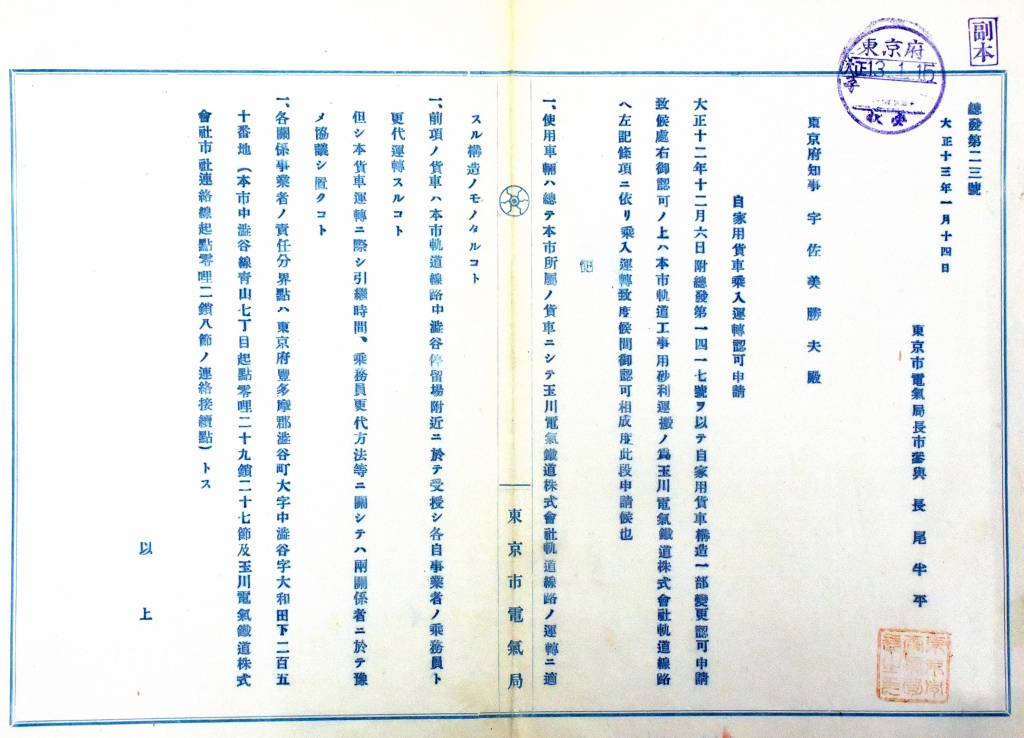 副本
東京府
13.1.15
總發第二三號
大正十三年一月十四日
東京市電氣局長市參與 長尾半平
東京府知事 宇佐美勝夫殿
自家用貨車乘入運轉認可申請
大正十二年十二月六日附總發第一四一七號ヲ以テ自家用貨車構造一部變更認可申請
致候處右御認可ノ上ハ本市軌道工事用砂利運搬ノ爲玉川電氣鐵道株式會社軌道線路
ヘ左記條項ニ依リ乘入運轉致度候間御認可相成度此段申請候也
記
一、使用車輛ハ總テ本市所屬ノ貨車ニシテ玉川電氣鐵道株式會社軌道線路ノ運轉ニ適
スル構造ノモノタルコト
一、前項ノ貨車ハ本市軌道線路中澁谷停留場附近ニ於テ受授シ各自事業者ノ乘務員ト
更代運轉スルコト
但シ本貨車運轉ニ際シ引繼時間、乘務員更代方法等ニ關シテハ兩關係者ニ於テ豫
メ協議シ置クコト
一、各關係事業者ノ責任分界點ハ東京府豐多摩郡澁谷町大字中澁谷字大和田下二百五
十番地(本市中澁谷線靑山七丁目起點零哩二十九鎖二十七節及玉川電氣鐵道株式
會社市社連絡線起點零哩二鎖八節ノ連絡接續點)トス
以上
東京市電氣局